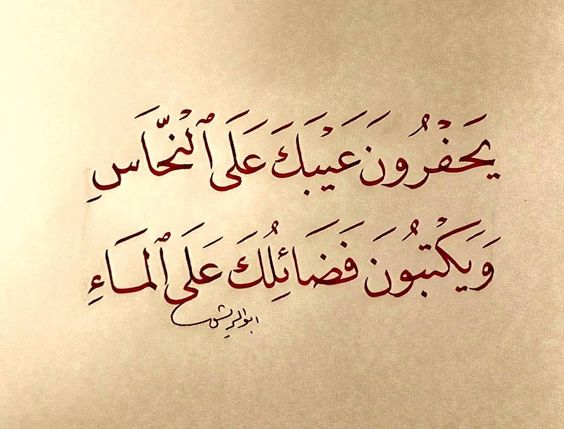 يَحْفُرُونَ عَيْبَكَ عَلَى ٱلْنُّحَاسِ
وَيَكْتُبُونَ فَضَائِلُكَ عَلَى ٱلمَاءِ
ابوالريش